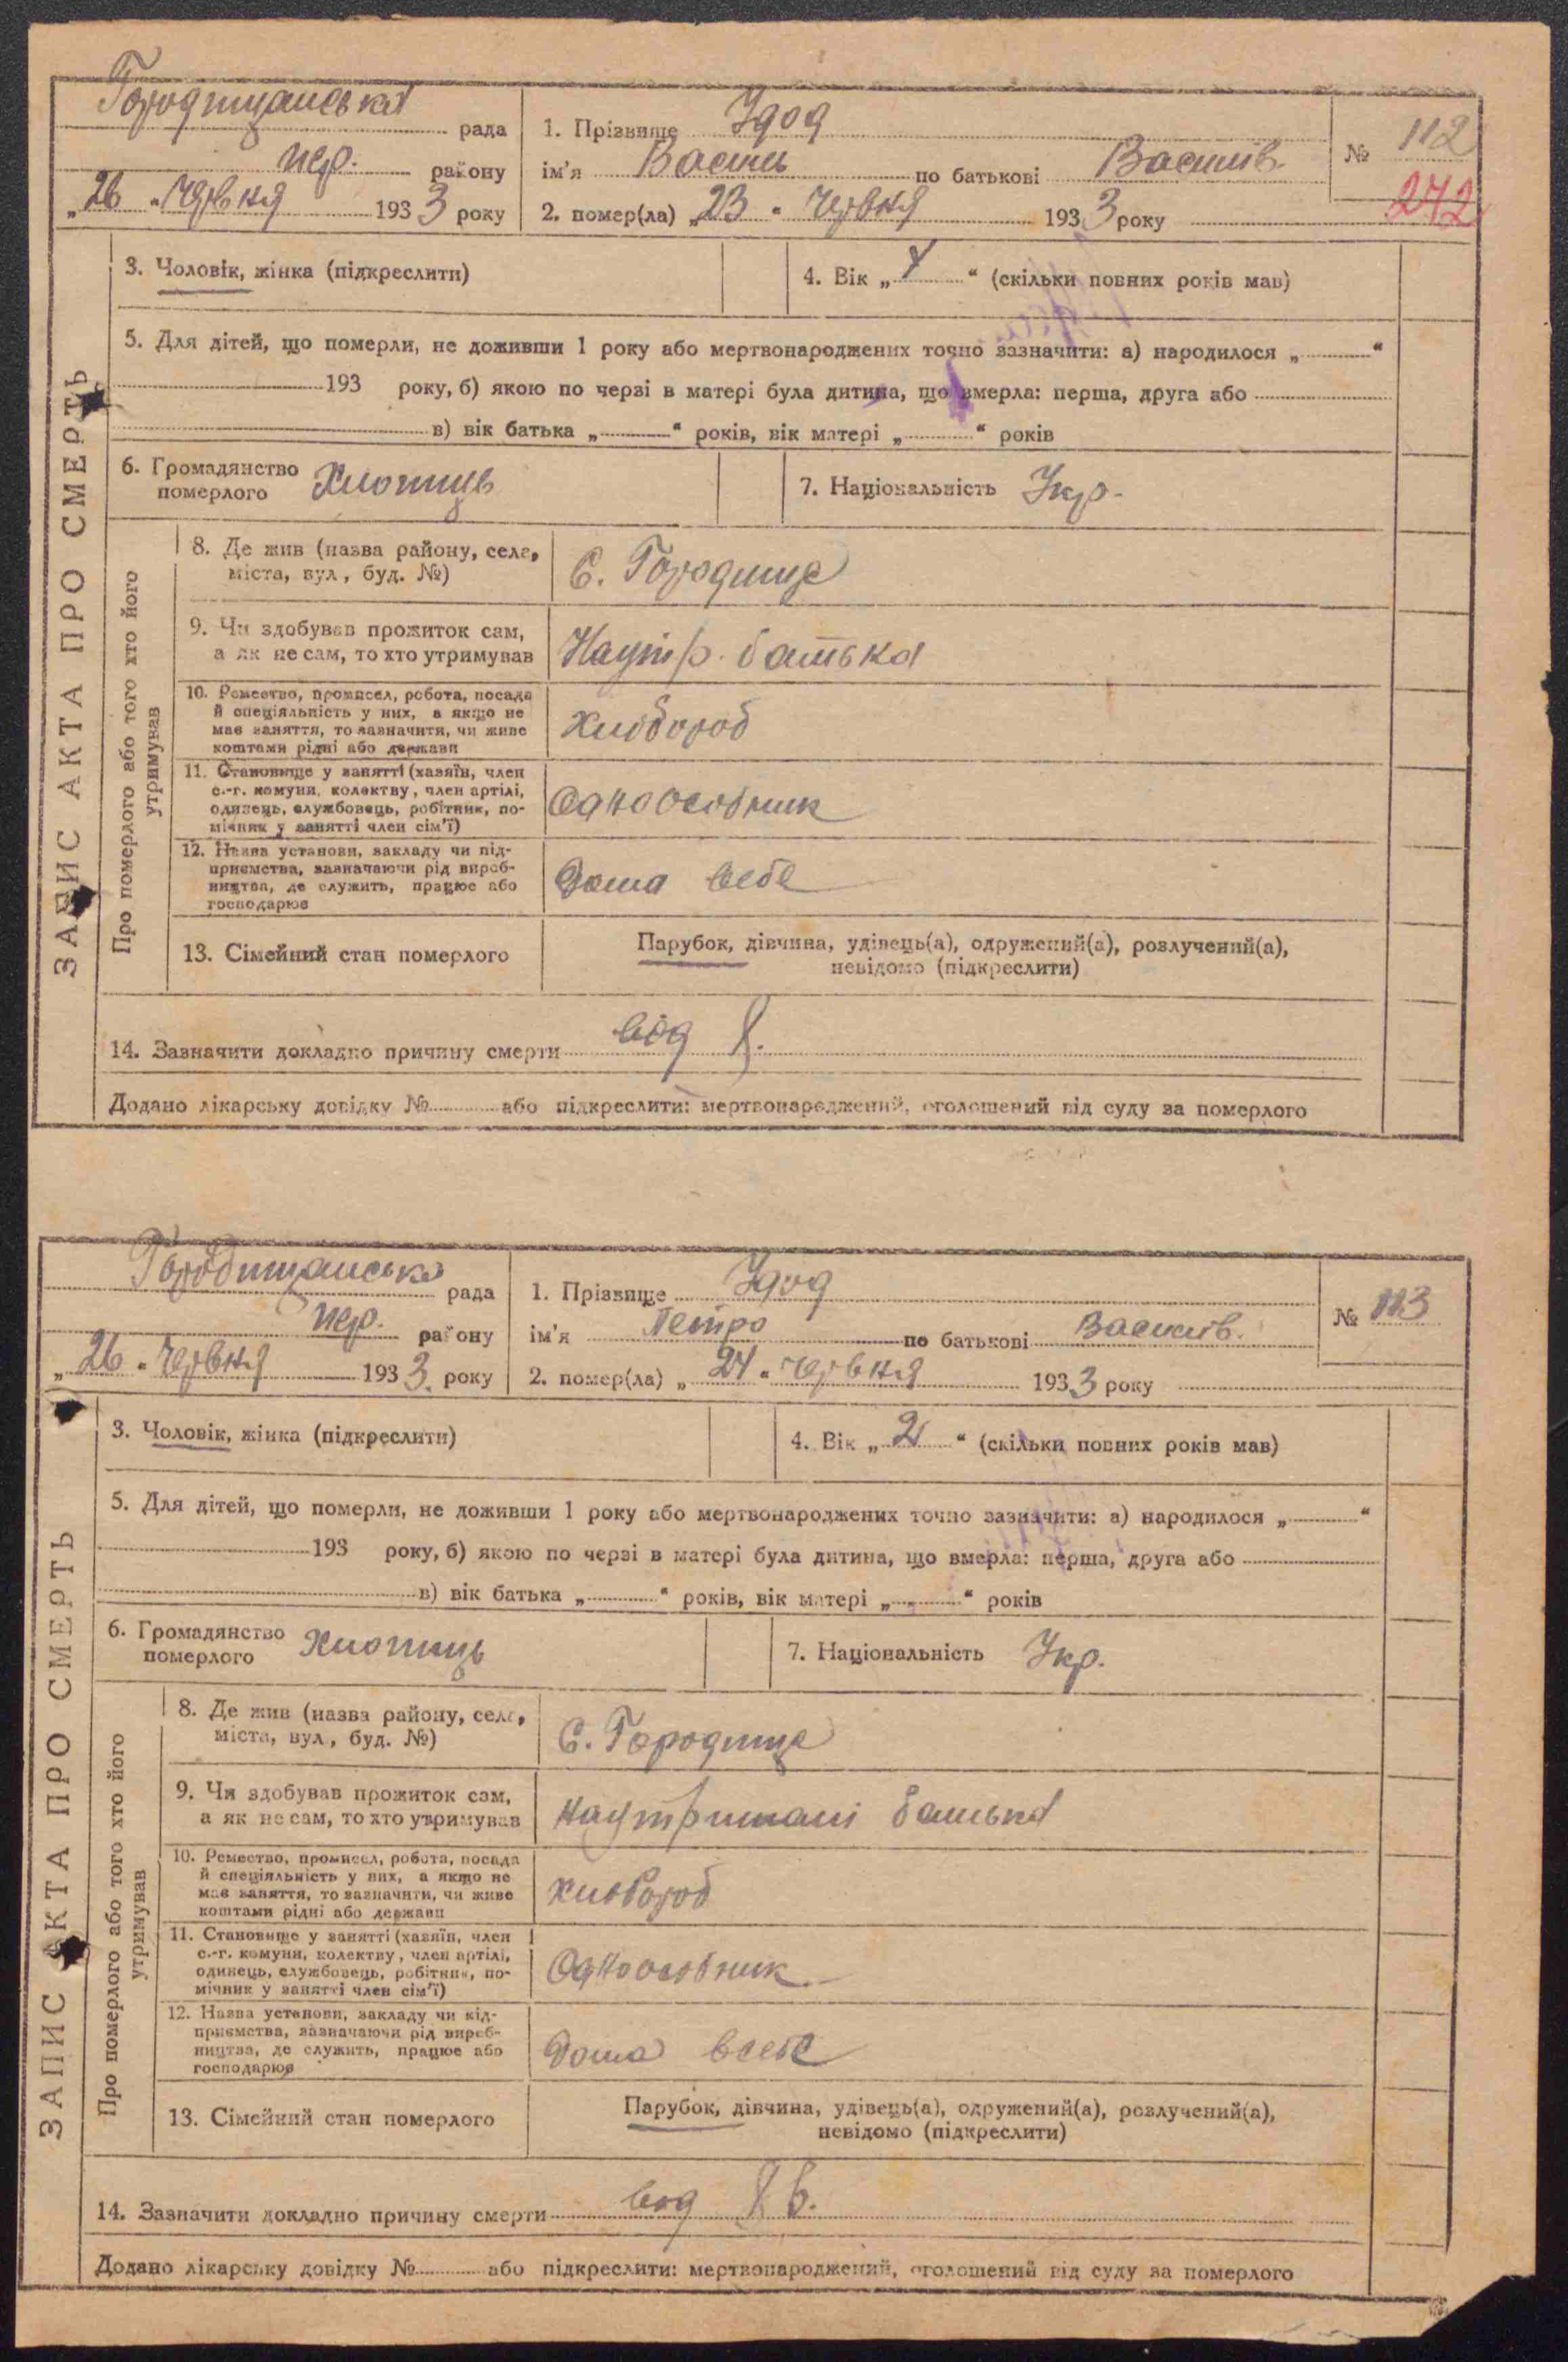 Городищанська рада
пер. району
„26“ червня 1933 року
1. Прізвище Удод
ім'я Василь по батькові Василів.
2. помер(ла) „23“ червня 1933 року
№ 112
272
ЗАПИС АКТА ПРО СМЕРТЬ
3. Чоловік, жінка (підкреслити)
4. Вік „ “ (скільки повних років мав)
5. Для дітей, що померли, не доживши 1 року або мертвонароджених точно зазначити: а) народилося „ “
193 року, б) якою по черзі в матері була дитина, що вмерла: перша, друга або
в) вік батька „ “ років, вік матері „ “ років
6. Громадянство
померлого Хлопець
7. Національність Укр.
Про померлого або того хто його
утримував
8. Де жив (назва району, села,
міста, вул, буд. №)
С. Городище
9. Чи здобував прожиток сам,
а як не сам, то хто утримував
Наутр. батька
10. Ремество, промисел, робота, посада
й спеціяльність у них, а якщо не
має заняття, то зазначити, чи живе
коштами рідні або держави
Хлібороб
11. Становище у занятті (хазяїн, член
с.-г. комуни, колектву, член артілі,
одинець, службовець, робітник, по-
мічник у занятті член сім'ї)
Одноосібник
12. Назва установи, закладу чи під-
приємства, зазначаючи рід вироб-
ництва, де служить, працює або
господарює
Дома в себе
13. Сімейний стан померлого
Парубок, дівчина, удівець(а), одружений(а), розлучений(а),
невідомо (підкреслити)
14. Зазначити докладно причину смерти від
Додано лікарську довідку № або підкреслити: мертвонароджений, оголошений від суду за померлого
Городищанська рада
пер. району
„26“ червня 1933 року
1. Прізвище Удод
ім'я Петро по батькові Василів.
2. помер(ла) „24“ червня 1933 року
№ 113
ЗАПИС АКТА ПРО СМЕРТЬ
3. Чоловік, жінка (підкреслити)
4. Вік „2“ (скільки повних років мав)
5. Для дітей, що померли, не доживши 1 року або мертвонароджених точно зазначити: а) народилося „ “
193 року, б) якою по черзі в матері була дитина, що вмерла: перша, друга або
в) вік батька „ “ років, вік матері „ “ років
6. Громадянство
померлого Хлопець
7. Національність Укр.
Про померлого або того хто його
утримував
8. Де жив (назва району, села,
міста, вул, буд. №)
С. Городище
9. Чи здобував прожиток сам,
а як не сам, то хто утримував
Наутримані батька
10. Ремество, промисел, робота, посада
й спеціяльність у них, а якщо не
має заняття, то зазначити, чи живе
коштами рідні або держави
Хлібороб
11. Становище у занятті (хазяїн, член
с.-г. комуни, колектву, член артілі,
одинець, службовець, робітник, по-
мічник у занятті член сім'ї)
Одноосібник
12. Назва установи, закладу чи під-
приємства, зазначаючи рід вироб-
ництва, де служить, працює або
господарює
Дома всебе
13. Сімейний стан померлого
Парубок, дівчина, удівець(а), одружений(а), розлучений(а),
невідомо (підкреслити)
14. Зазначити докладно причину смерти від
Додано лікарську довідку № або підкреслити: мертвонароджений, оголошений від суду за померлого